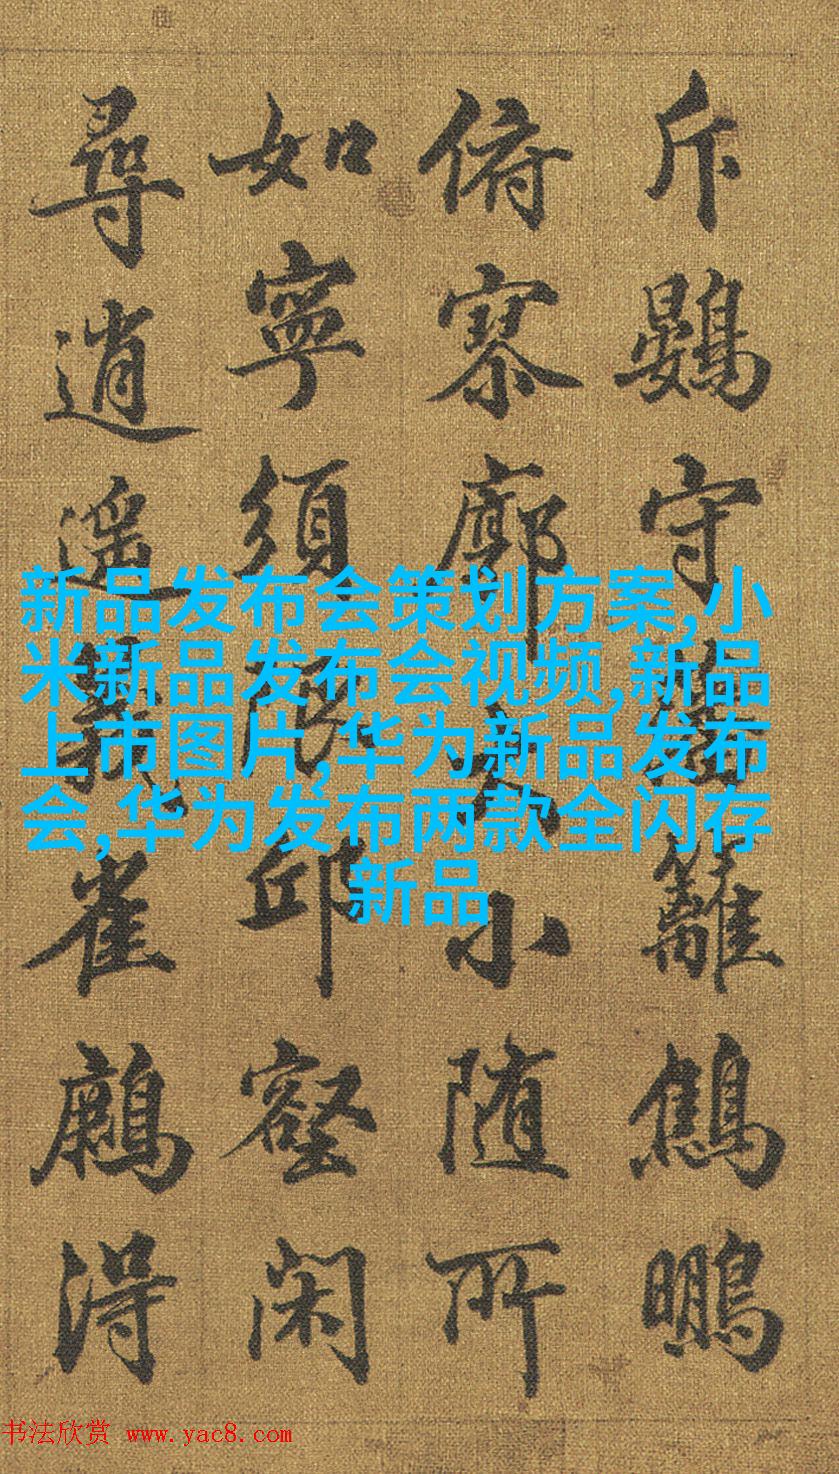 斥鷃守籬鵬
俯寥廓大小随所
如寧須限邱壑闲
尋逍遥義雀得
新品发布会策划方案,小
米新品发布会视频,新品
上市图片,华为新品发布
会,华为发布两款全闪存
新品
书法欣赏 www.yac8.com